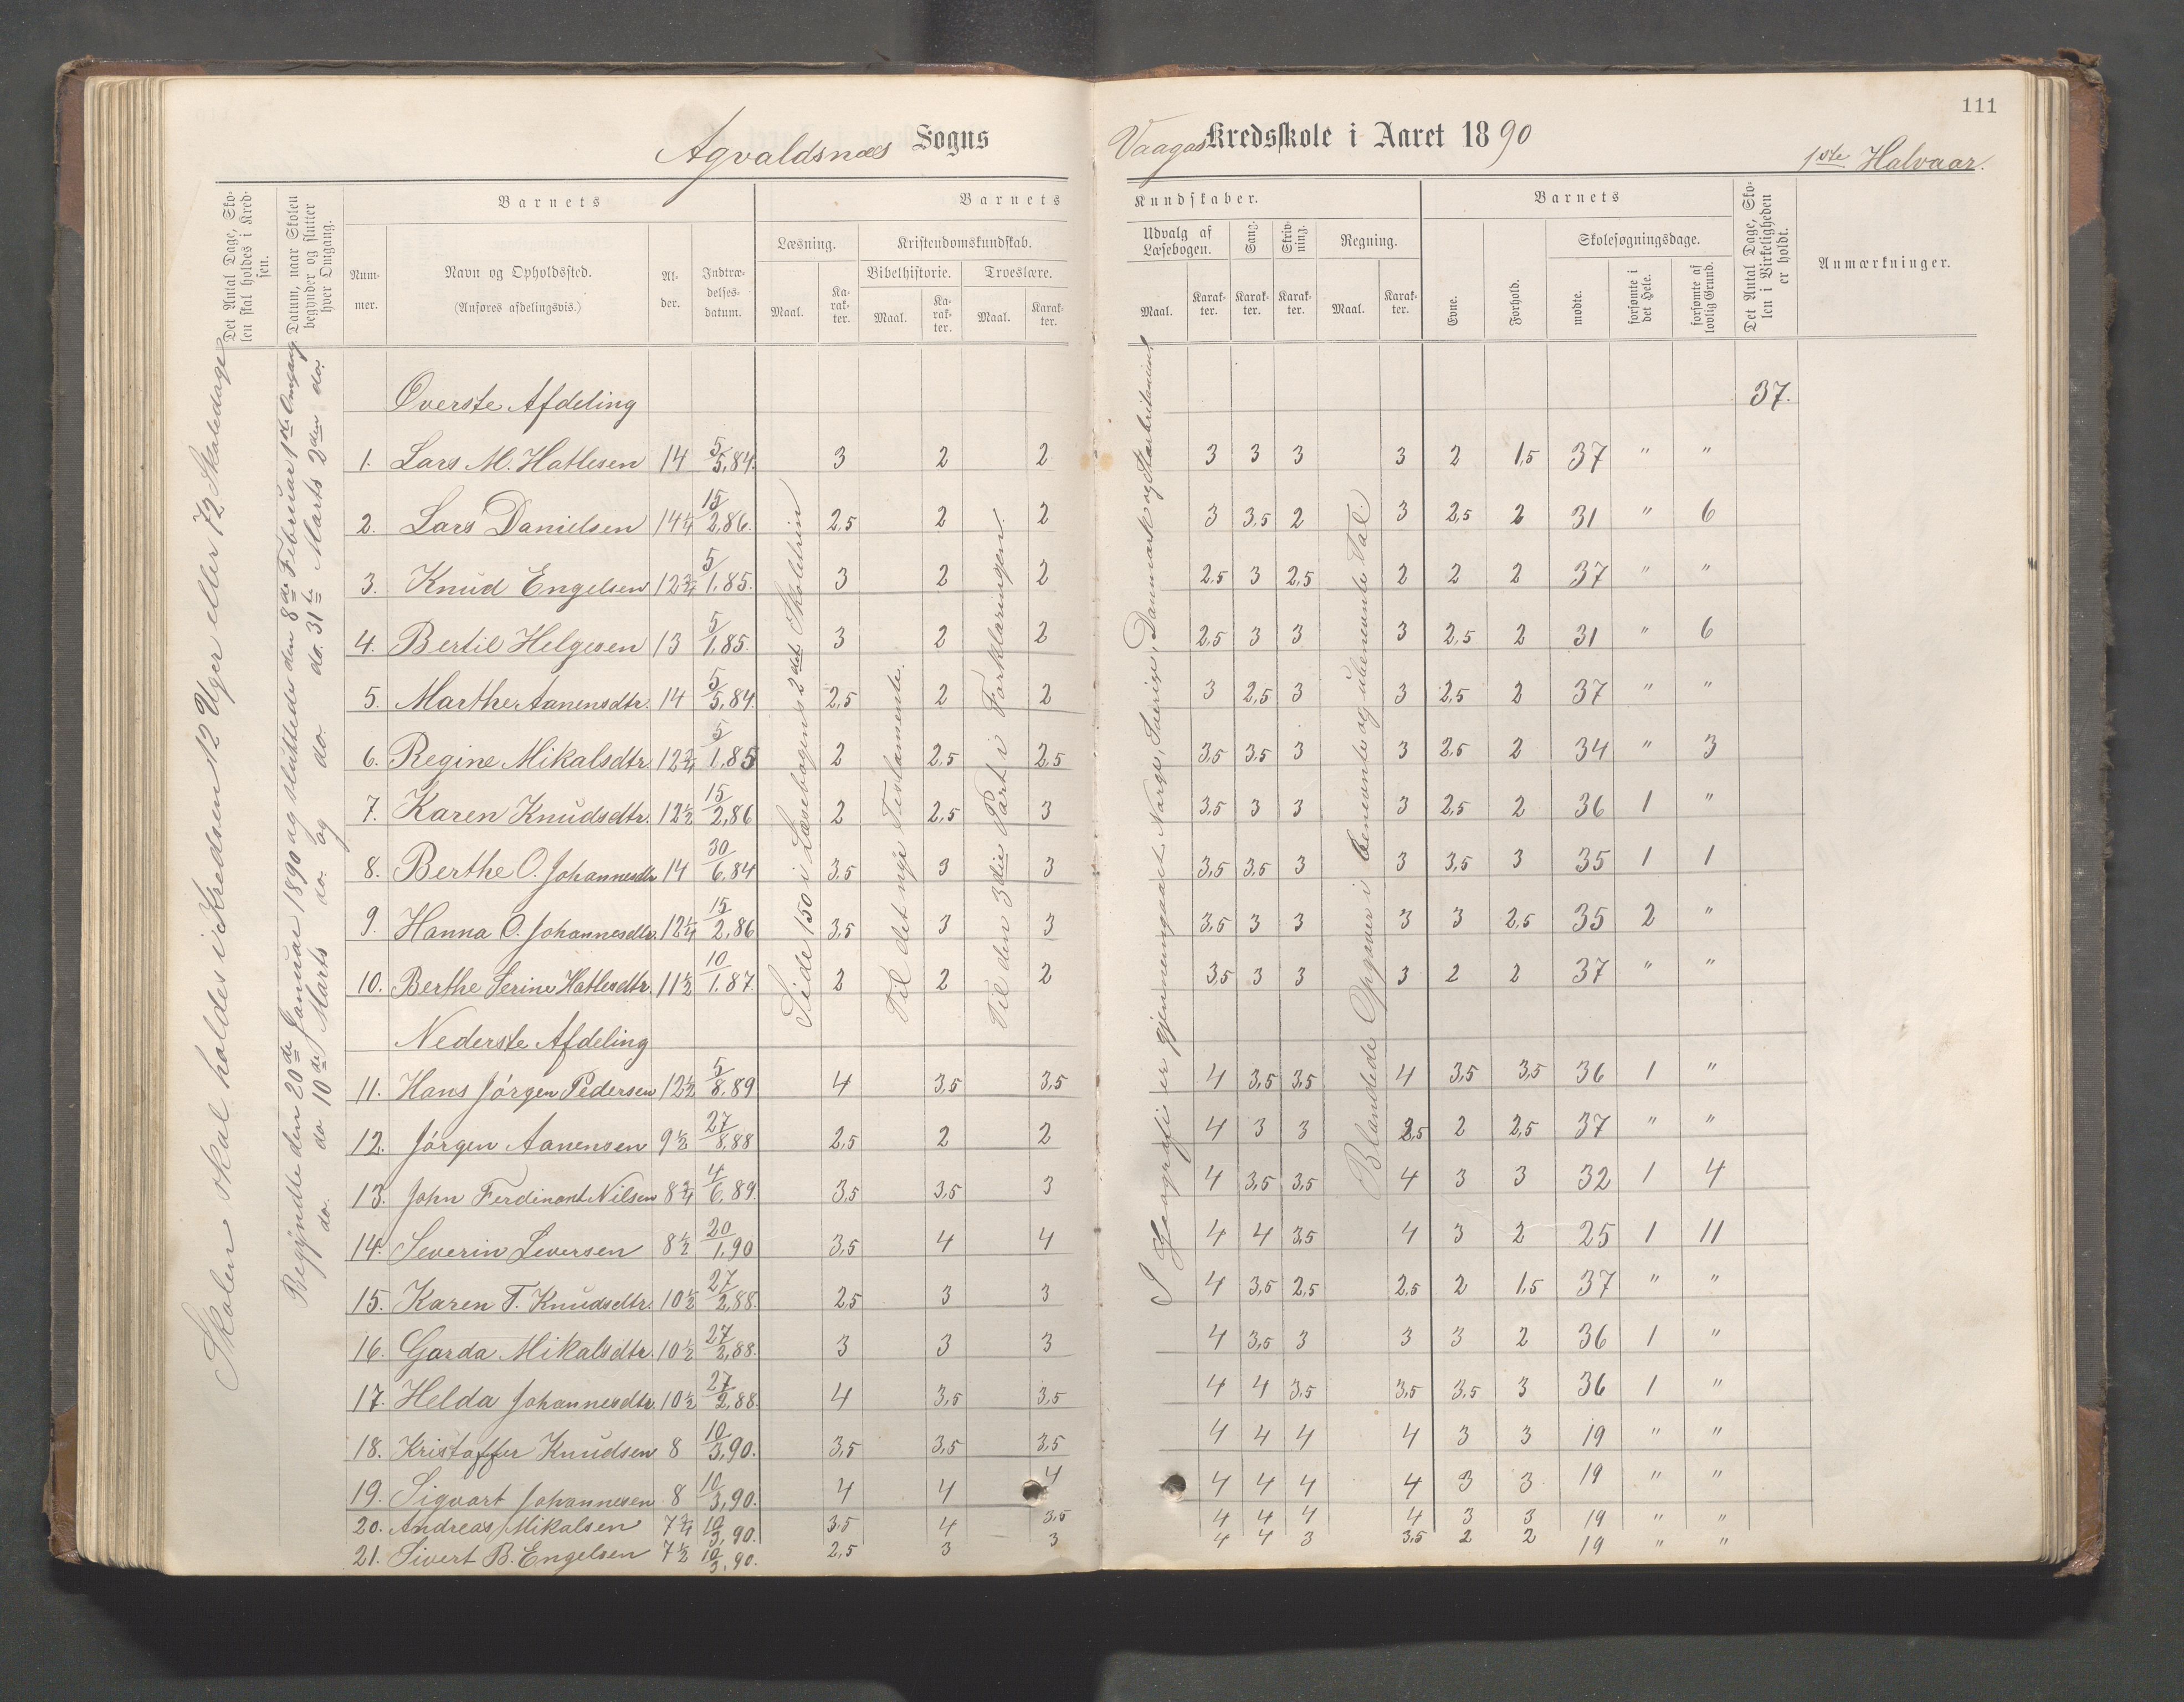 111
Agvaldsnæs Sogns Vaagas Kredsskole i Aaret 1890 1ste Halvaar.
Det Antal Dage, Skolen skal holdes i Kredsen.
Datum, naar Skolen begynder og slutter hver Omgang.
Barnets
Nummer.
Navn og Opholdssted.
(Anføres afdelingsvis.)
Alder.
Indtrædelsesdatum.
Barnets Kundskaber.
Læsning.
Maal.
Karakter.
Kristendomskundskab.
Bibelhistorie.
Maal.
Karakter.
Troeslære.
Maal.
Karakter.
Udvalg af Læsebogen.
Maal.
Karakter.
Sang.
Karakter.
Skrivning.
Karakter.
Regning.
Maal.
Karakter.
Barnets
Evne.
Forhold.
Skolesøgningsdage.
mødte.
forsømte i det Hele.
forsømte af lovlig Grund.
Det Antal Dage, Skolen i Virkeligheden er holdt.
Anmærkninger.
Skolen skal holdes i Kredsen 12 Uger eller 72 Skoledage
Begyndte den 20de Januar 1890 og sluttede den 8de Februar 1ste Omgang
do. do. 10de Marts do. og do. do. 31te Marts 2den do.
Side 150 i Læsebogens 2det Skoletrin
Til det nye Testamente.
Til den 3die Part i Forklaringen.
I Geografi er gjennemgaaet Norge, Sverige, Danmark og Storbritanien
Blandede Opgaver i benevnte og ubenevnte Tal.
Øverste Afdeling 37.
1. Lars M. Hatlesen 14 5/5,84. 3 2 2 3 3 3 3 2 1,5 37 " "
2. Lars Danielsen 14 1/4 15/2,86. 2,5 2 2 3 3,5 2 3 2,5 2 31 " 6
3. Knud Engelsen 12 3/4 5/1,85. 3 2 2 2,5 3 2,5 2 2 2 37 " "
4. Bertil Helgesen 13 5/1,85. 3 2 2 2,5 3 3 3 2,5 2 31 " 6
5. Marthe Aanensdtr. 14 5/5,84. 2,5 2 2 3 2,5 3 3 2,5 2 37 " "
6. Regine Mikalsdtr. 12 3/4 5/1,85 2 2,5 2,5 3,5 3,5 3 3 2,5 2 34 " 3
7. Karen Knudsdtr. 12 1/2 15/2,86 2 2,5 3 3,5 3 3 3 2,5 2 36 1 "
8. Berthe O. Johannesdtr 14 30/6,84 3,5 3 3 3,5 3,5 3 3 3,5 3 35 1 1
9. Hanna O. Johannesdtr. 12 1/4 15/2,86 3,5 3 3 3,5 3 3 3 3 2,5 35 2 "
10. Berthe Serine Hatlesdtr. 11 1/2 10/1,87. 2 2 2 3,5 3 3 3 2 2 37 " "
Nederste Afdeling
11. Hans Jörgen Pedersen 12 1/2 5/8,89 4 3,5 3,5 4 3,5 3,5 4 3,5 3,5 36 1 "
12. Jörgen Aanensen 9 1/2 27/8,88 2,5 2 2 4 3 3 2,5 2 2,5 37 " "
13. John Ferdinant Nilsen 8 3/4 4/6,89. 3,5 3,5 3 4 3,5 3,5 4 3 3 32 1 4
14. Severin Seversen 8 1/2 20/1,90 3,5 4 4 4 4 3,5 4 3 2 25 1 11
15. Karen T. Knudsdtr. 10 1/2 27/2,88. 2,5 3 3 4 3,5 2,5 2,5 2 1,5 37 " "
16. Garda Mikalsdtr. 10 1/2 27/2,88. 3 3 3 4 3,5 3 3 3 2 36 1 "
17. Helda Johannesdtr. 10 1/2 27/2,88. 4 3,5 3,5 4 4 3,5 3,5 3,5 3 36 1 "
18. Kristoffer Knudsen 8 10/3,90. 3,5 3,5 3,5 4 4 4 4 3 3 19 " "
19. Sigvart Johannesen 8 10/3,90. 4 4 4 4 4 4 4 3 3 19 " "
20. Andreas Mikalsen 7 3/4 10/3,90. 3,5 4 3,5 4 4 4 4 3 3 19 " "
21. Sivert B. Engelsen 7 1/2 10/3,90. 2,5 3 3 4 4 3 3,5 2 2 19 " "